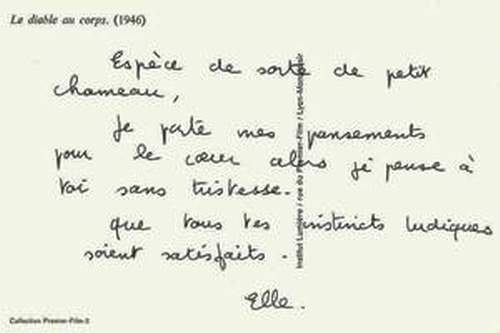 Le diable au corps. (1946)
Espèce de sorte de petit
chameau,
Je porte mes pansements
pour le cœur alors je pense à
toi sans tristesse.
que tous tes instincts ludiques
soient satisfaits.
Elle.
Institut Lumière / rue du Premier-Film / Lyon-Monplaisir
Collection Premier-Film